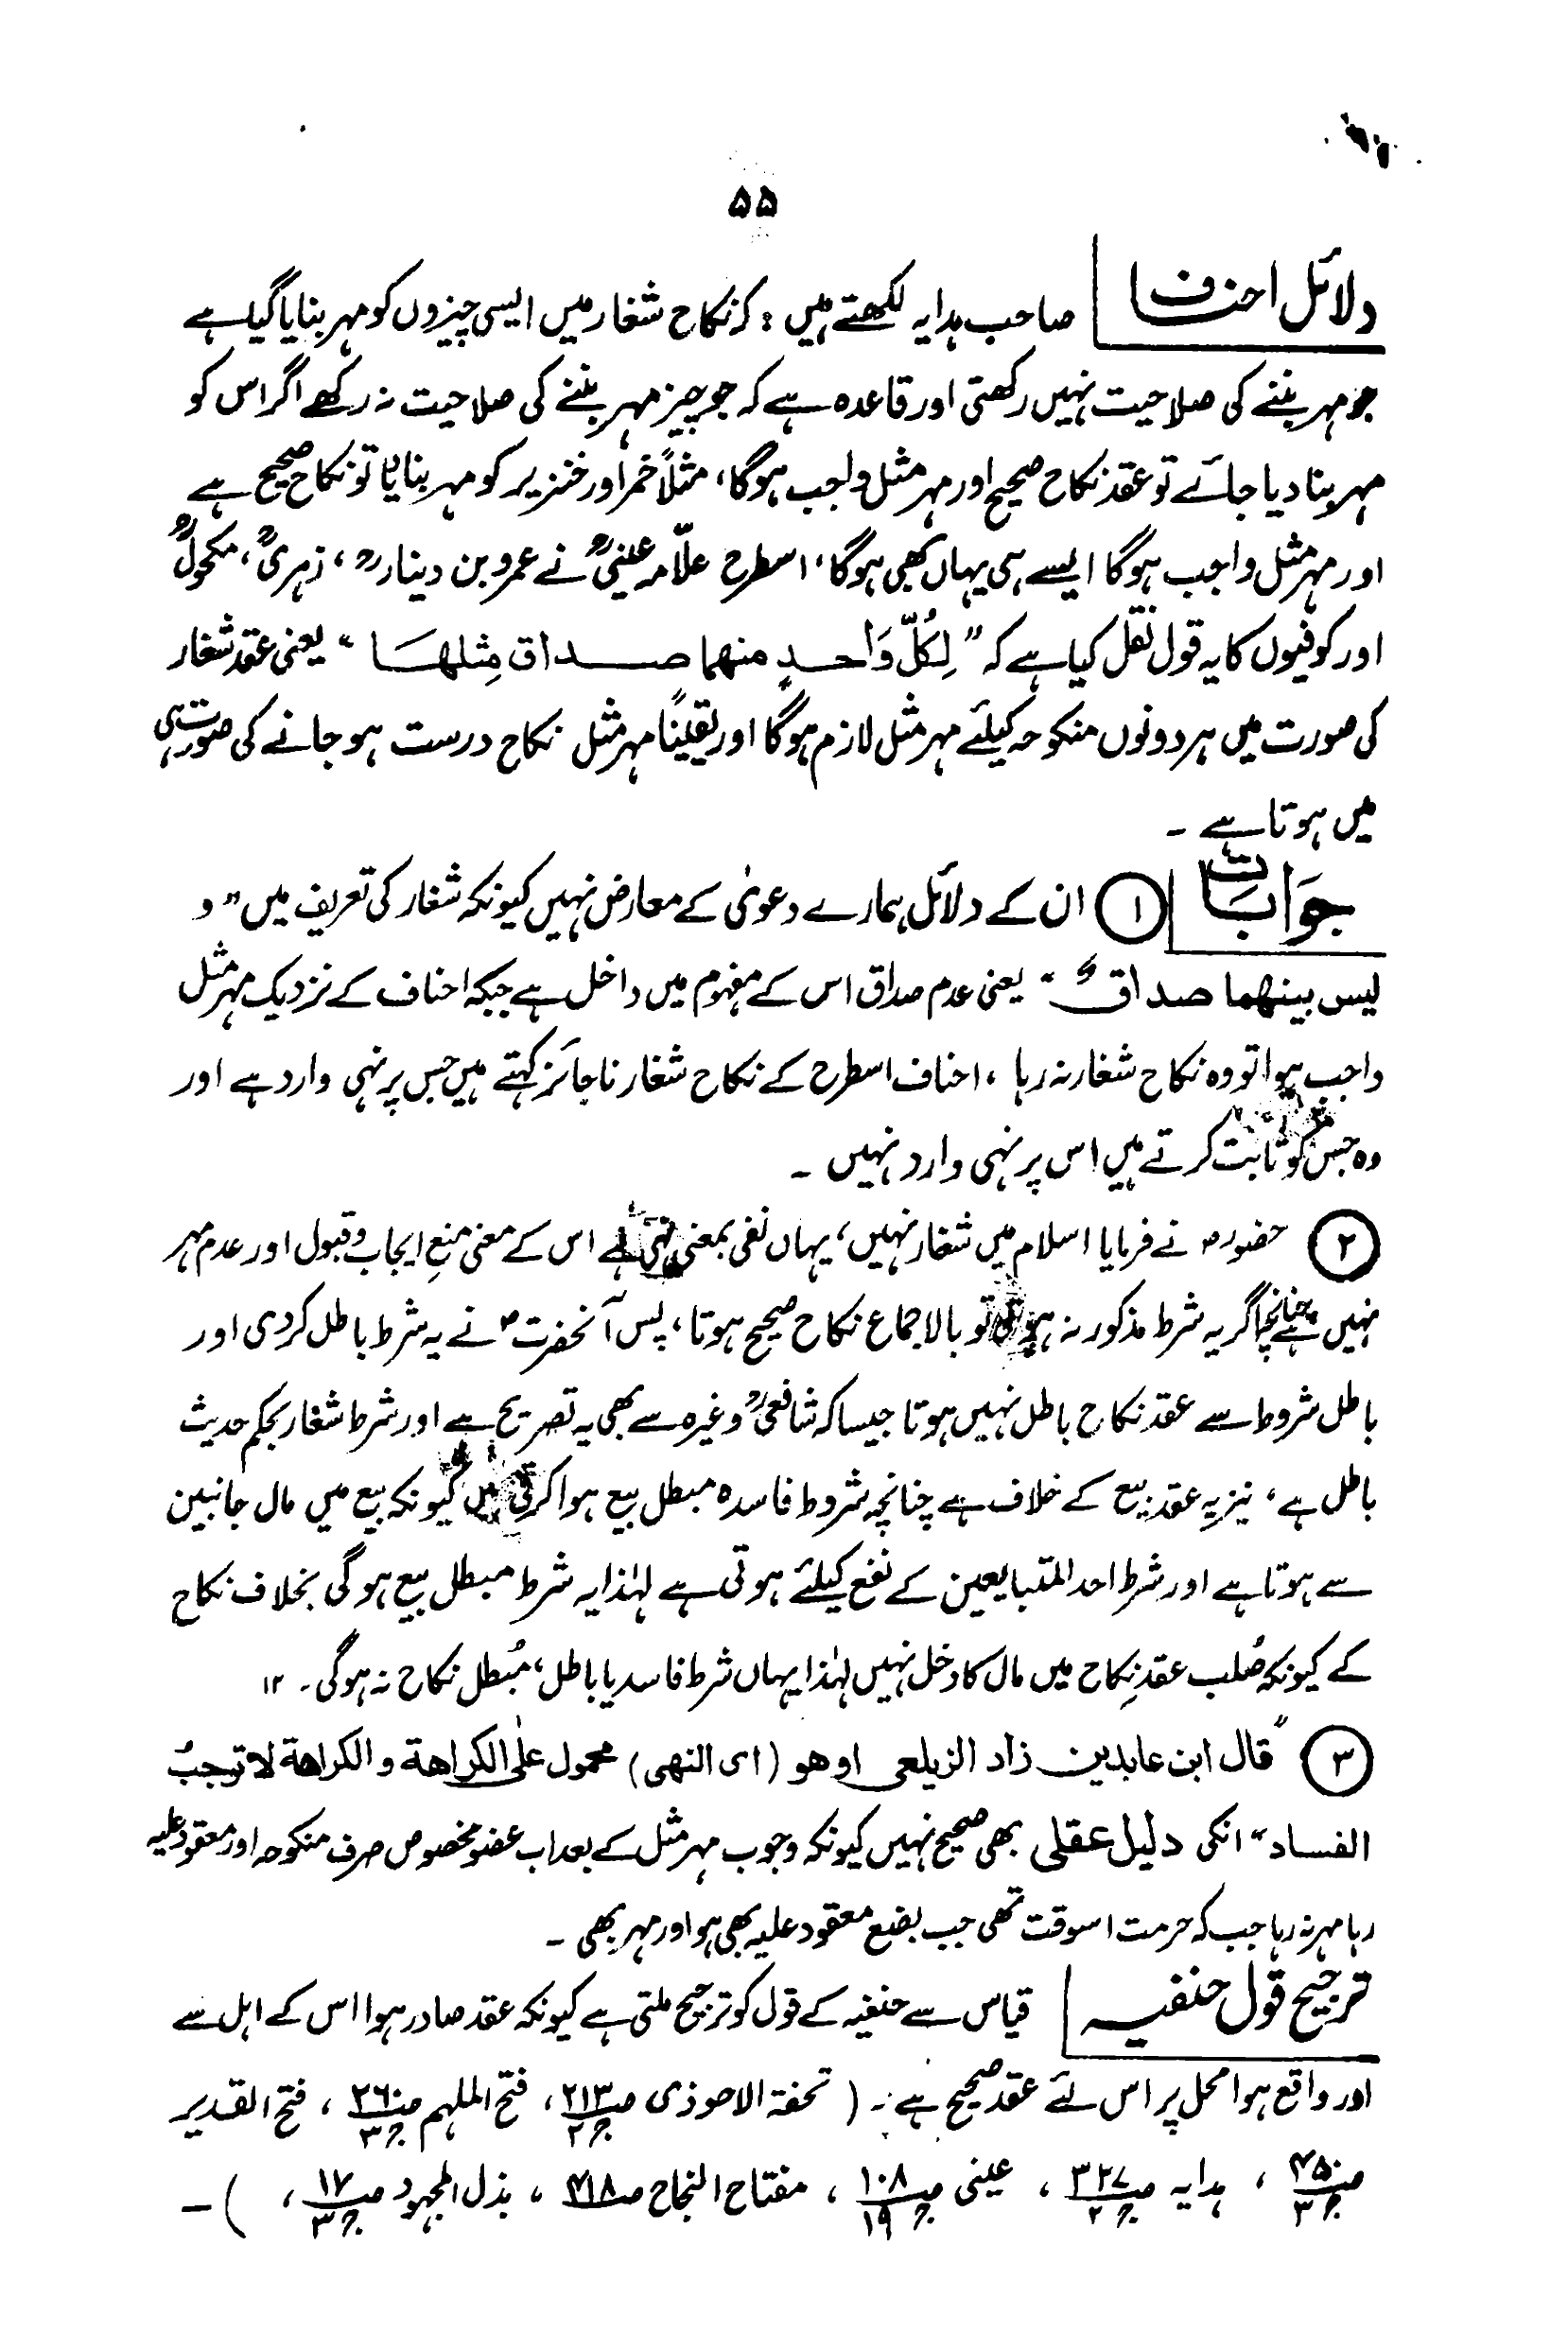 ۵۵
دلائل احناف صاحب ہدایہ لکھتے ہیں: کہ نکاح شغار میں ایسی چیزوں کو مہر بنایا گیا ہے
جو مہر بننے کی صلاحیت نہیں رکھتی اور قاعدہ ہے کہ جو چیز مہر بننے کی صلاحیت نہ رکھے اگر اس کو
مہر بنا دیا جائے تو عقد نکاح صحیح اور مہر مثل واجب ہوگا، مثلاً خمر اور خنزیر کو مہر بنایا تو نکاح صحیح ہے
اور مہر مثل واجب ہوگا ایسے ہی یہاں بھی ہوگا، اسطرح علّامہ عینیؒ نے عمرو بن دینارؒ، زہریؒ، مکحولؒ
اور کوفیوں کا یہ قول نقل کیا ہے کہ "لِکُلِّ وَاحدٍ منهما صداق مِثلهَا" یعنی عقد شغار
کی صورت میں ہر دونوں منکوحہ کیلئے مہر مثل لازم ہوگا اور یقیناً مہر مثل نکاح درست ہو جانے کی صورت ہی
میں ہوتا ہے ۔
جَوَابَات ① ان کے دلائل ہمارے دعویٰ کے معارض نہیں کیونکہ شغار کی تعریف میں "و
لیس بینهما صداقٌ" یعنی عدم صداق اس کے مفہوم میں داخل ہے جبکہ احناف کے نزدیک مہر مثل
واجب ہوا تو وہ نکاح شغار نہ رہا، احناف اسطرح کے نکاح شغار ناجائز کہتے ہیں جس پر نہی وارد ہے اور
وہ جس کو ثابت کرتے ہیں اس پر نہی وارد نہیں ۔
② حضورؐ نے فرمایا اسلام میں شغار نہیں، یہاں نفی بمعنی نہی ہے اس کے معنی منعِ ایجاب و قبول اور عدم مہر
نہیں ہے چنانچہ اگر یہ شرط مذکور نہ ہوتی تو بالاجماع نکاح صحیح ہوتا، پس آنحضرتؐ نے یہ شرط باطل کر دی اور
باطل شروط سے عقد نکاح باطل نہیں ہوتا جیسا کہ شافعیؒ وغیرہ سے بھی یہ تصریح ہے اور شرط شغار بحکم حدیث
باطل ہے، نیز یہ عقد بیع کے خلاف ہے چنانچہ شروط فاسدہ مبطل بیع ہوا کرتی ہیں کیونکہ بیع میں مال جانبین
سے ہوتا ہے اور شرط احد المتبایعین کے نفع کیلئے ہوتی ہے لہٰذا یہ شرط مبطل بیع ہوگی بخلاف نکاح
کے کیونکہ صُلب عقدِ نکاح میں مال کا دخل نہیں لہٰذا یہاں شرط فاسد یا باطل، مُبطل نکاح نہ ہوگی۔ ۱۲
③ "قال ابن عابدین زاد الزیلعی او هو (ای النهی) محمول علی الکراهة و الکراهة لا توجبُ
الفساد" انکی دلیل عقلی بھی صحیح نہیں کیونکہ وجوب مہر مثل کے بعد اب عضو مخصوص صرف منکوحہ اور معقود علیہ
رہا مہر نہ رہا جب کہ حرمت اسوقت تھی جب بضع معقود علیہ بھی ہو اور مہر بھی ۔
ترجیح قول حنفیہ قیاس سے حنفیہ کے قول کو ترجیح ملتی ہے کیونکہ عقد صادر ہوا اس کے اہل سے
اور واقع ہوا محل پر اس لئے عقد صحیح ہے ۔ ( تحفۃ الاحوذی ص۲۱۳ ج۲، فتح الملہم ص۳۶۰ ج۳، فتح القدیر
ص۴۵۰ ج۳، ہدایہ ص۳۲۷ ج۲، عینی ص۱۰۸ ج۱۹، مفتاح النجاح ص۴۱۸، بذل المجہود ص۱۷ ج۳، ) ۔